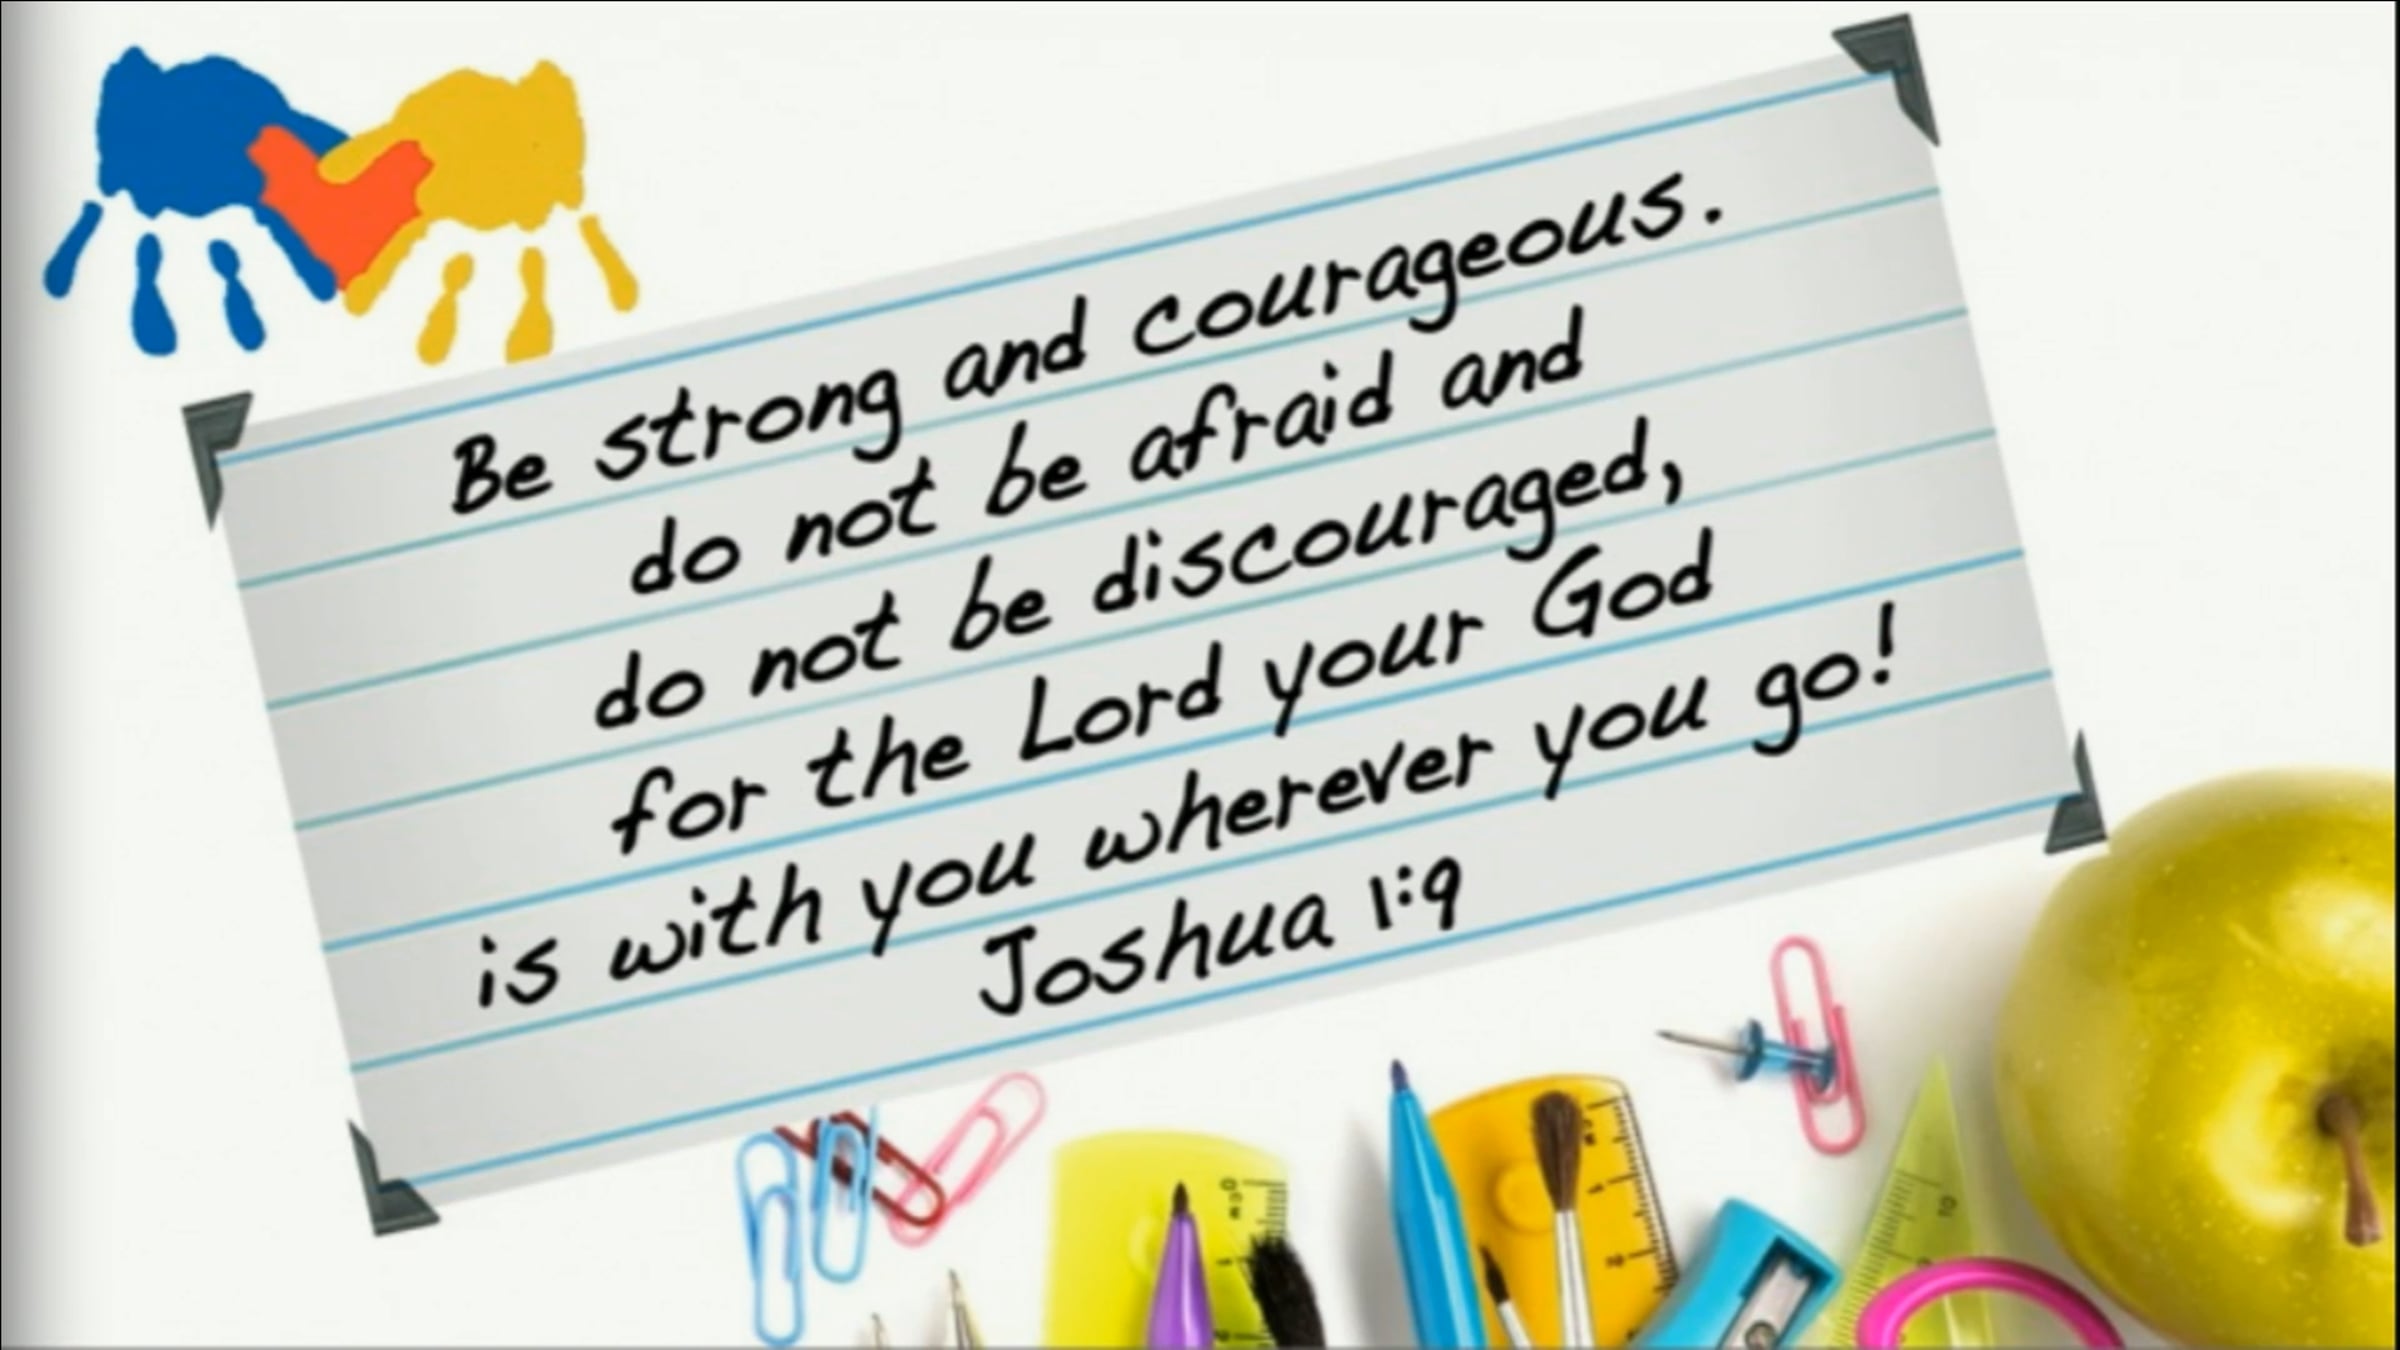 Be strong and courageous.
do not be afraid and
do not be discouraged,
for the Lord your God
is with you wherever you go!
Joshua 1:9